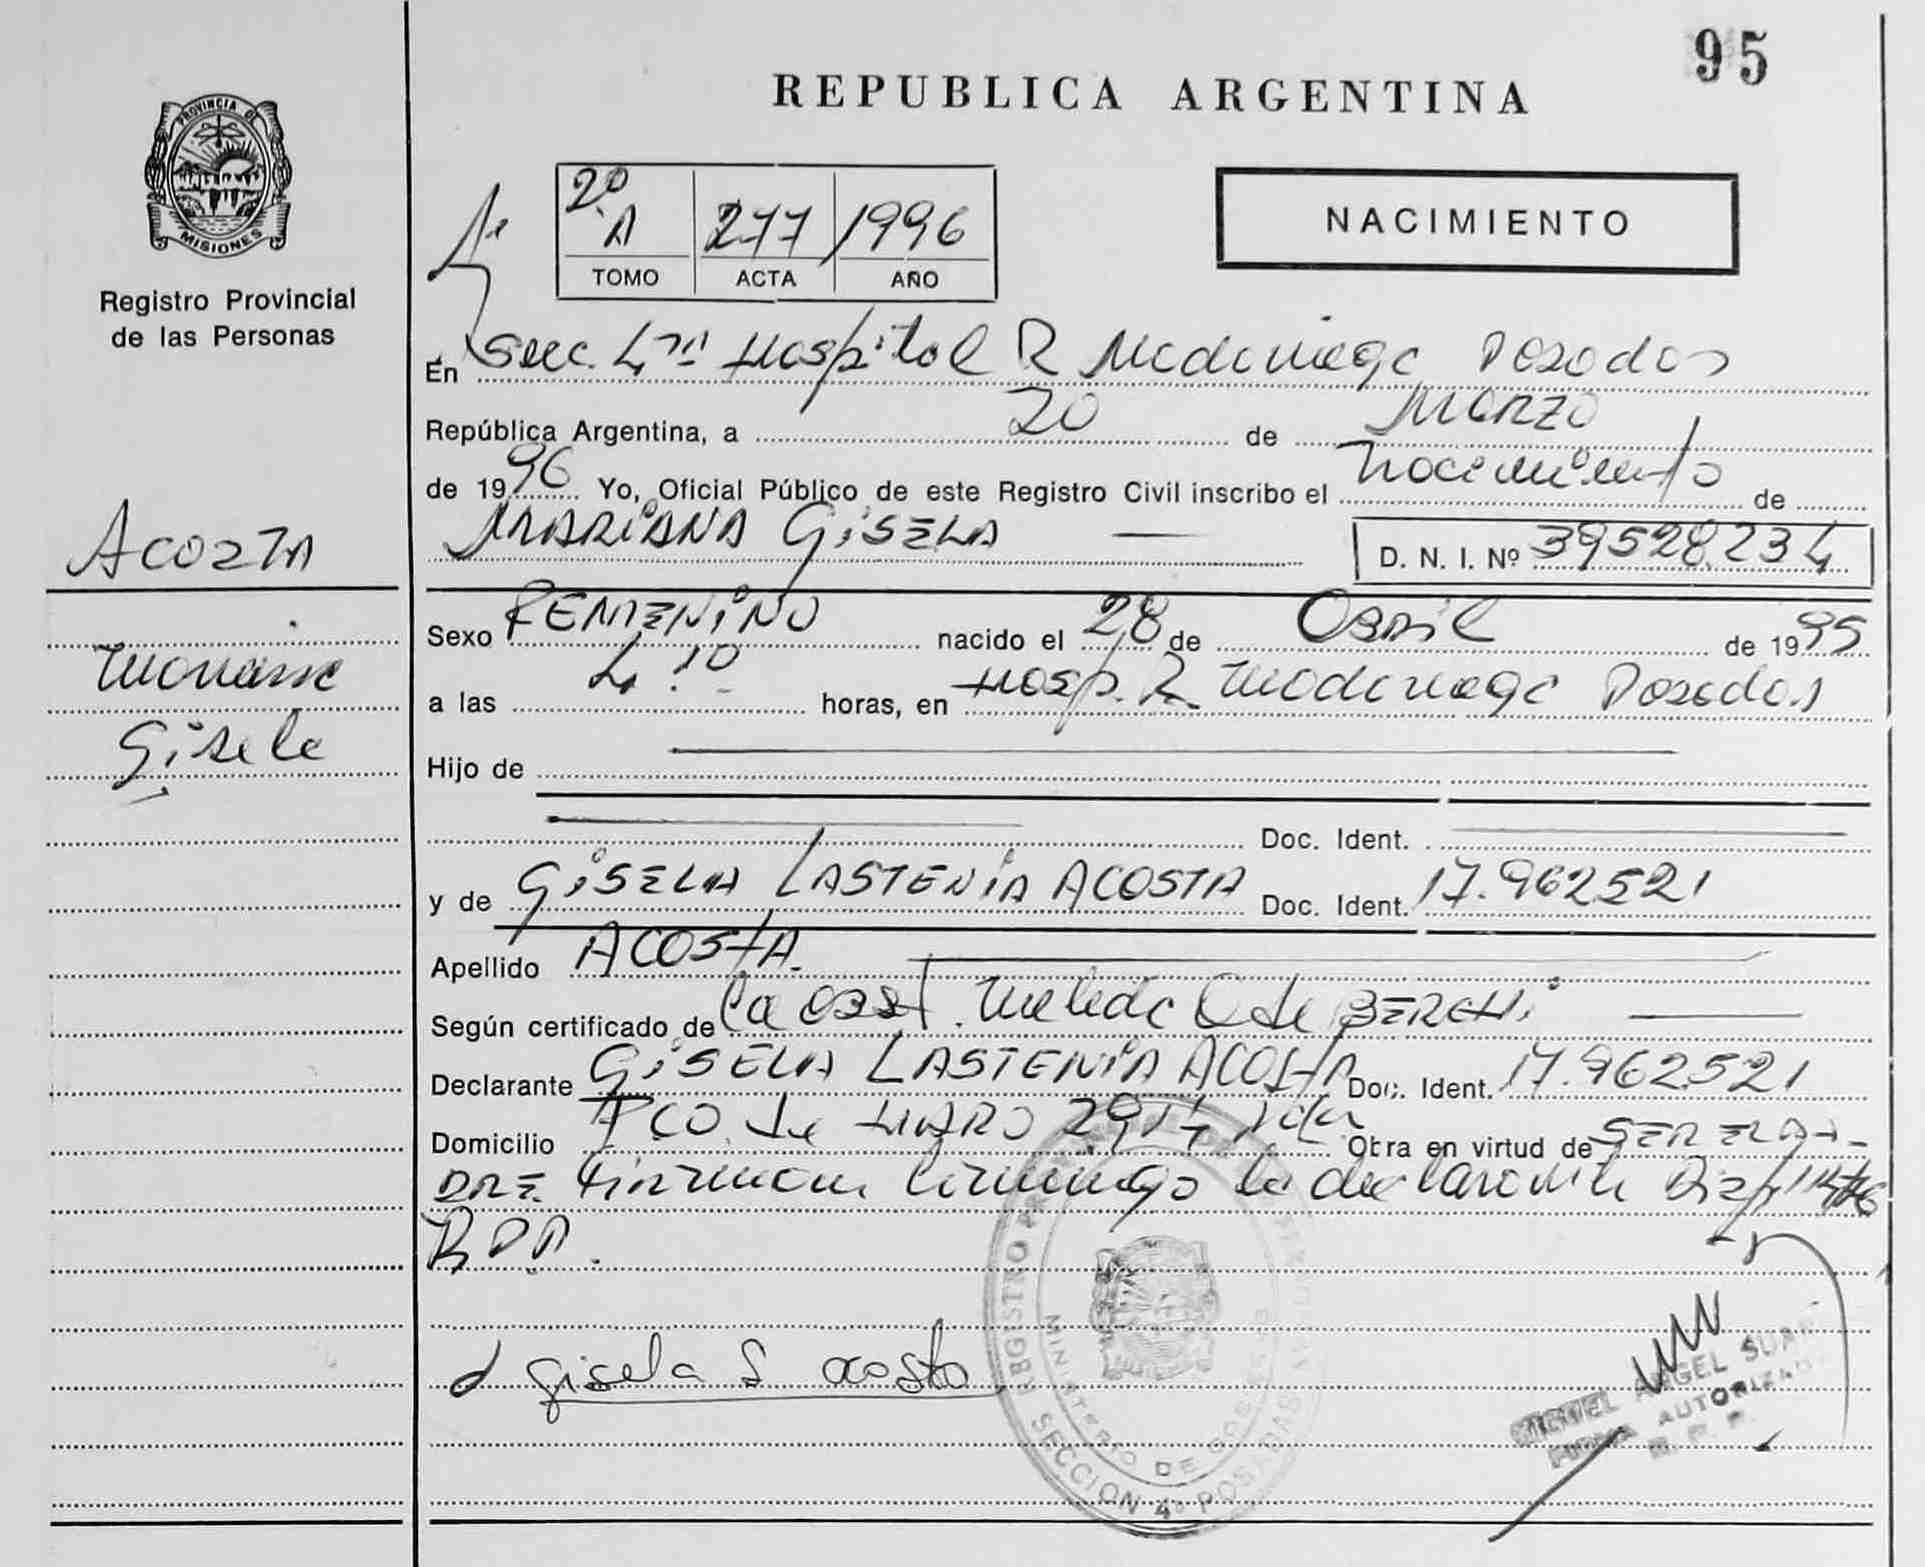 95
REPUBLICA ARGENTINA
PROVINCIA DE
MISIONES
Registro Provincial
de las Personas
2º A 277 1996
TOMO ACTA AÑO
NACIMIENTO
En Secc. 4ta Hospital R Madariaga Posadas
República Argentina, a 20 de Marzo
de 1996 Yo, Oficial Público de este Registro Civil inscribo el nacimiento de
MARIANA GISELA D. N. I. Nº 39528.234
ACOSTA
Mariana
Gisela
Sexo FEMENINO nacido el 28 de Abril de 1995
a las 4.10 horas, en Hosp. R. Madariaga Posadas
Hijo de
Doc. Ident.
y de GISELA LASTENIA ACOSTA Doc. Ident. 17.962521
Apellido ACOSTA
Según certificado de la obst.
Declarante GISELA LASTENIA ACOSTA Doc. Ident. 17.962521
Domicilio FCO de HARO Obra en virtud de SER
DRE. conmigo la declarante Disp
RPP.
Gisela L Acosta
REGISTRO
MINISTERIO DE GOBIERNO
SECCION 4º POSADAS
MIGUEL ANGEL
FIRMA AUTORIZADA
R. P. P.